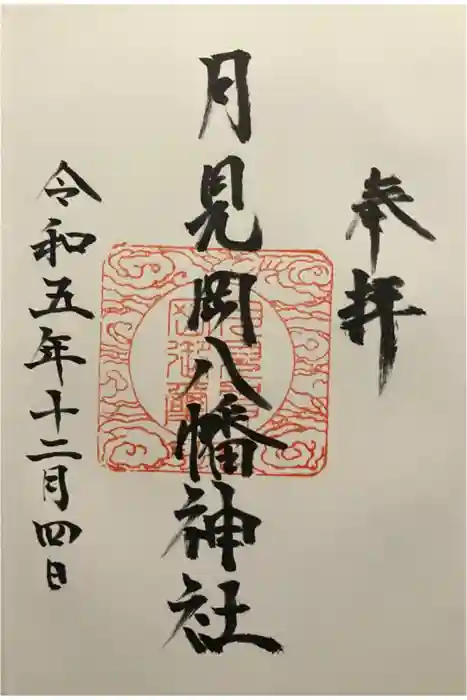 奉拝
月見岡八幡神社
令和五年十二月四日